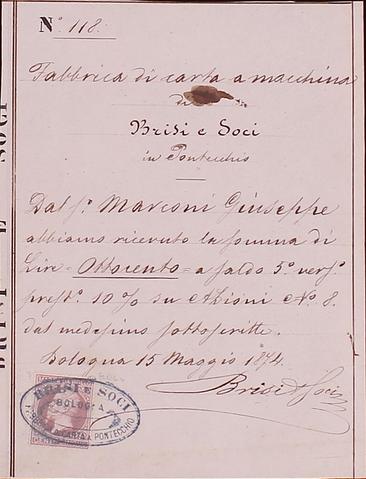 N.° 118.
Fabbrica di carta a macchina
di
Brisi e Soci
in Pontecchio
Dal S.r Marconi Giuseppe
abbiamo ricevuto la somma di
Lire = Ottocento = a saldo 5.° vers.°
prest.° 10 % su Azioni N.° 8.
dal medesimo sottoscritte.
Bologna 15 Maggio 1874.
Brisi e Soci
BRISI E SOCI
BOLOGNA
CARTA A PONTECCHIO
BRISI E SOCI